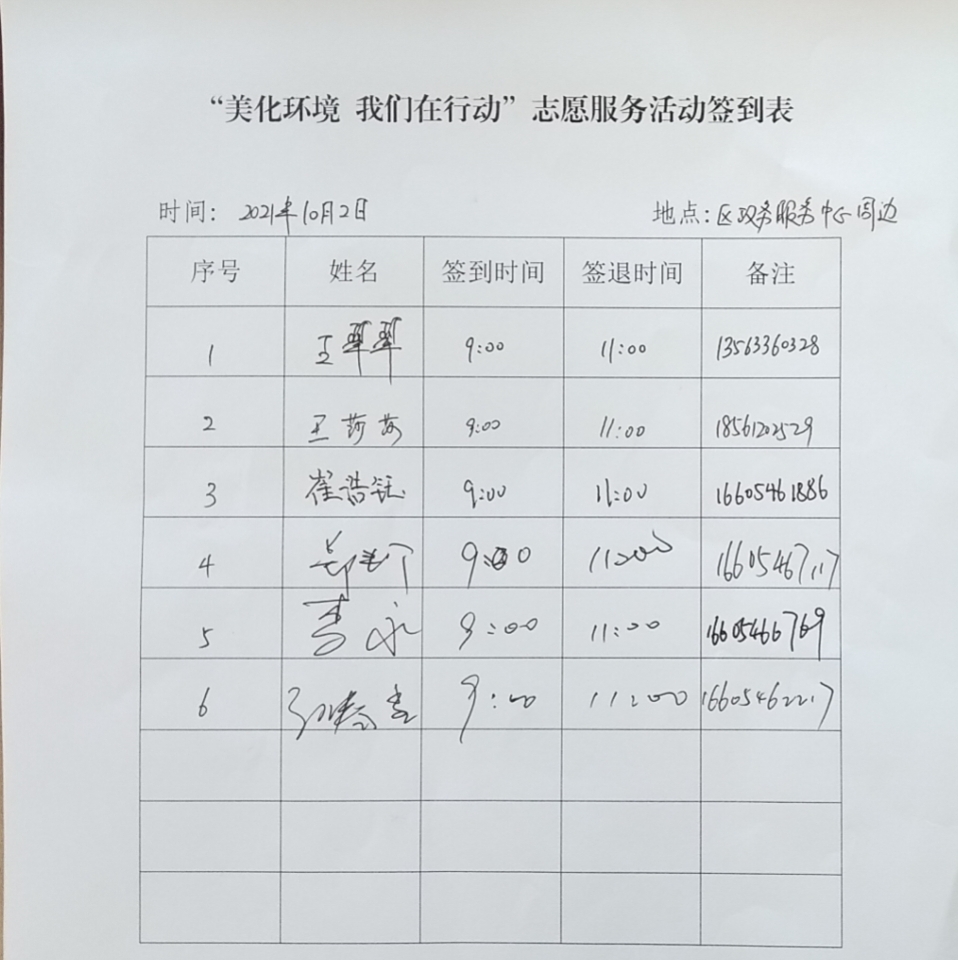 “美化环境 我们在行动”志愿服务活动签到表
时间: 2021年10月2日 地点:区政务服务中心周边
序号 姓名 签到时间 签退时间 备注
1 王翠翠 9:00 11:00 13563360328
2 王莎莎 9:00 11:00 18561202529
3 崔浩钰 9:00 11:00 16605461886
4 9:00 11:00 16605467117
5 9:00 11:00 16605466769
6 9:00 11:00 16605462217